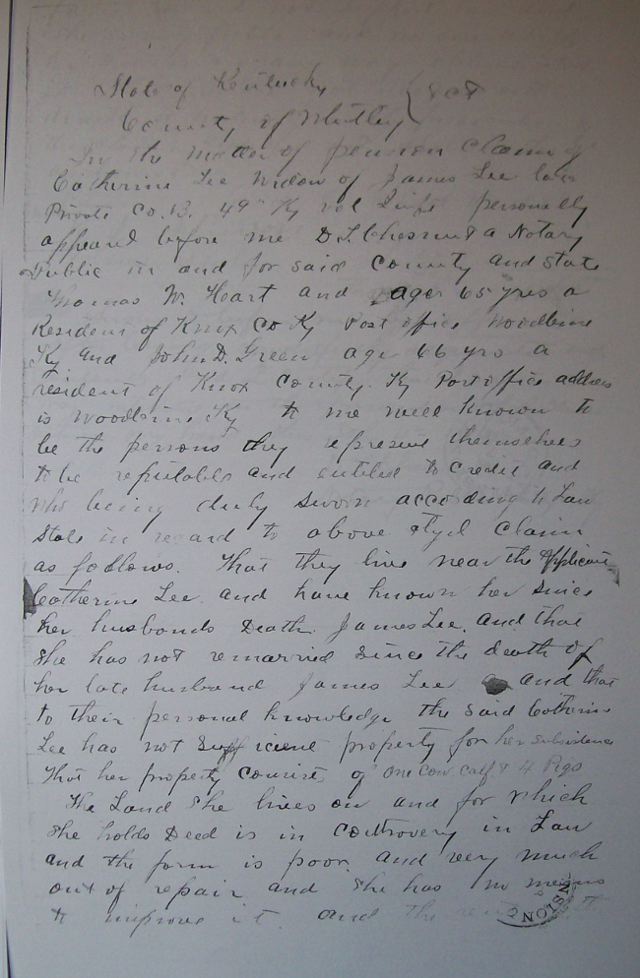 State of Kentucky
County of Whitley } SCT
In the matter of pension claim of
Catherine Lee widow of James Lee late
Private Co. B. 49" Ky vol Inft personally
appeared before me D L Chesnut a Notary
Public in and for said County and State
Thomas W. Heart and age 65 yrs a
Resident of Knox Co Ky Post office Woodbine
Ky and John D. Green age 66 yrs a
resident of Knox County Ky Post office address
is Woodbine Ky to me well known to
be the persons they represent themselves
to be reputable and entitled to credit and
who being duly sworn according to Law
State in regard to above styd Claim
as follows. That they live near the Applicant
Catherine Lee and have known her since
her husbands Death James Lee. and that
She has not remarried since the death of
her late husband James Lee and that
to their personal knowledge the said Catherine
Lee has not Sufficient property for her subsistence
That her property consists of one cow calf & 4 Pigs
The Land she lives on and for which
she holds Deed is in controvery in Law
and the farm is poor and very much
out of repair and she has no means
to improve it and the